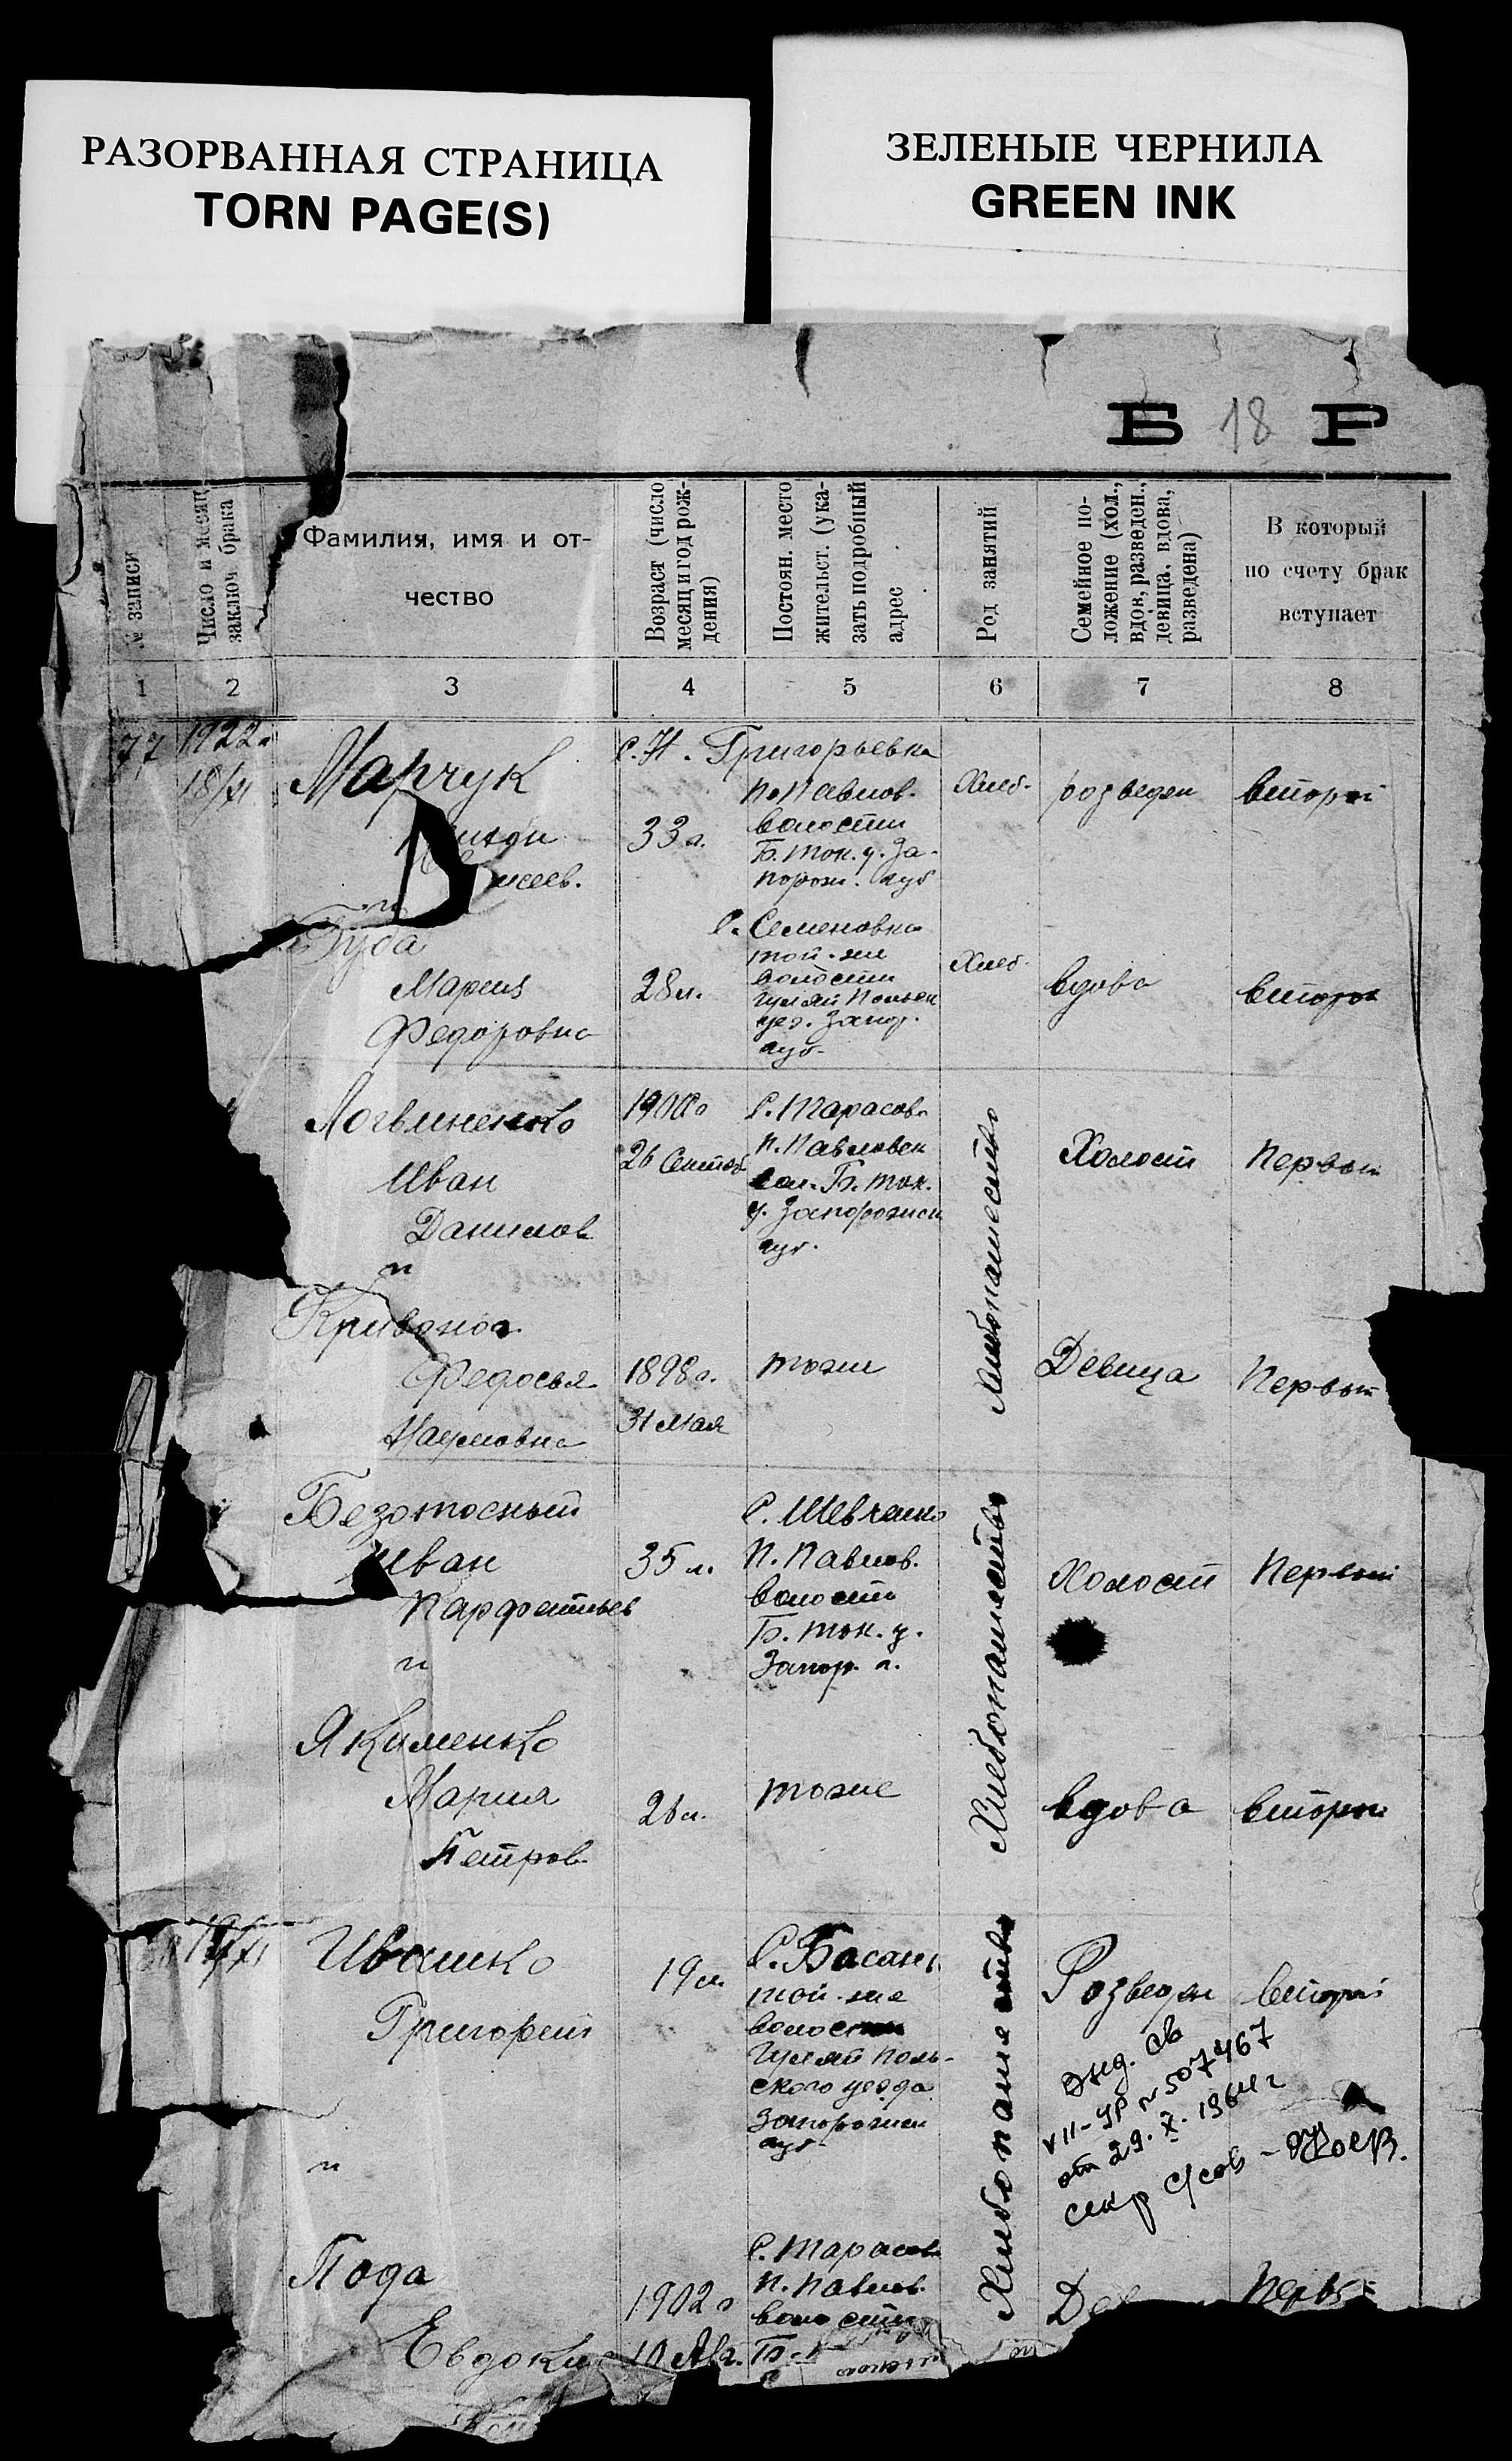 РАЗОРВАННАЯ СТРАНИЦА
TORN PAGE(S)
ЗЕЛЕНЫЕ ЧЕРНИЛА
GREEN INK
Б 18 Р
№ записи
Число и месяц
заключ брака
Фамилия, имя и от-
чество
Возраст (число
месяц и год рож-
дения)
Постоян. место
жительст. (ука-
зать подробный
адрес
Род занятий
Семейное по-
ложение (хол.,
вдов, разведен.,
девица, вдова,
разведена)
В который
по счету брак
вступает
1 2 3 4 5 6 7 8
77
1922г
18/XI
Марчук
и
Губа
Мария
Федоровна
33 л.
28 л.
с. Н. Григорьевка
П. Павлов.
волости
Б. Ток. у. За-
порож. губ
с. Семеновка
той-же
волости
Гуляй Польск
уез. Запор.
губ.
Хлеб.
Хлеб.
розведен
вдова
второй
второй
Логвиненко
Иван
Данилов
и
Кривонос
Федосья
Наумовна
1900г
26 Сентяб
1898г.
31 Мая
С. Тарасов.
П. Павловск
вол. Б. Ток.
у. Запорожск
губ.
тоже
Хлебопашество
Холост
Девица
Первый
Первый
Безотосный
Иван
Парфентьев
и
Якименко
Мария
Петров.
35 л.
26 л.
С. Шевченко
П. Павлов.
волости
Б. Ток. у.
Запор. г.
тоже
Хлебопашество
Холост
вдова
Первый
второй
19/XI
Ивашко
Григорий
и
Пода
Евдокия
19 л.
1902г
10 Авг.
С. Басань
той-же
волости
Гуляй Поль-
ского уезда
Запорожск
губ.
С. Тарасов
П. Павлов.
волости
Б.
Хлебопашество
Розведен
второй
VII-УР № 507467
от 29. X. 1964г
секр с/сов -
Перв